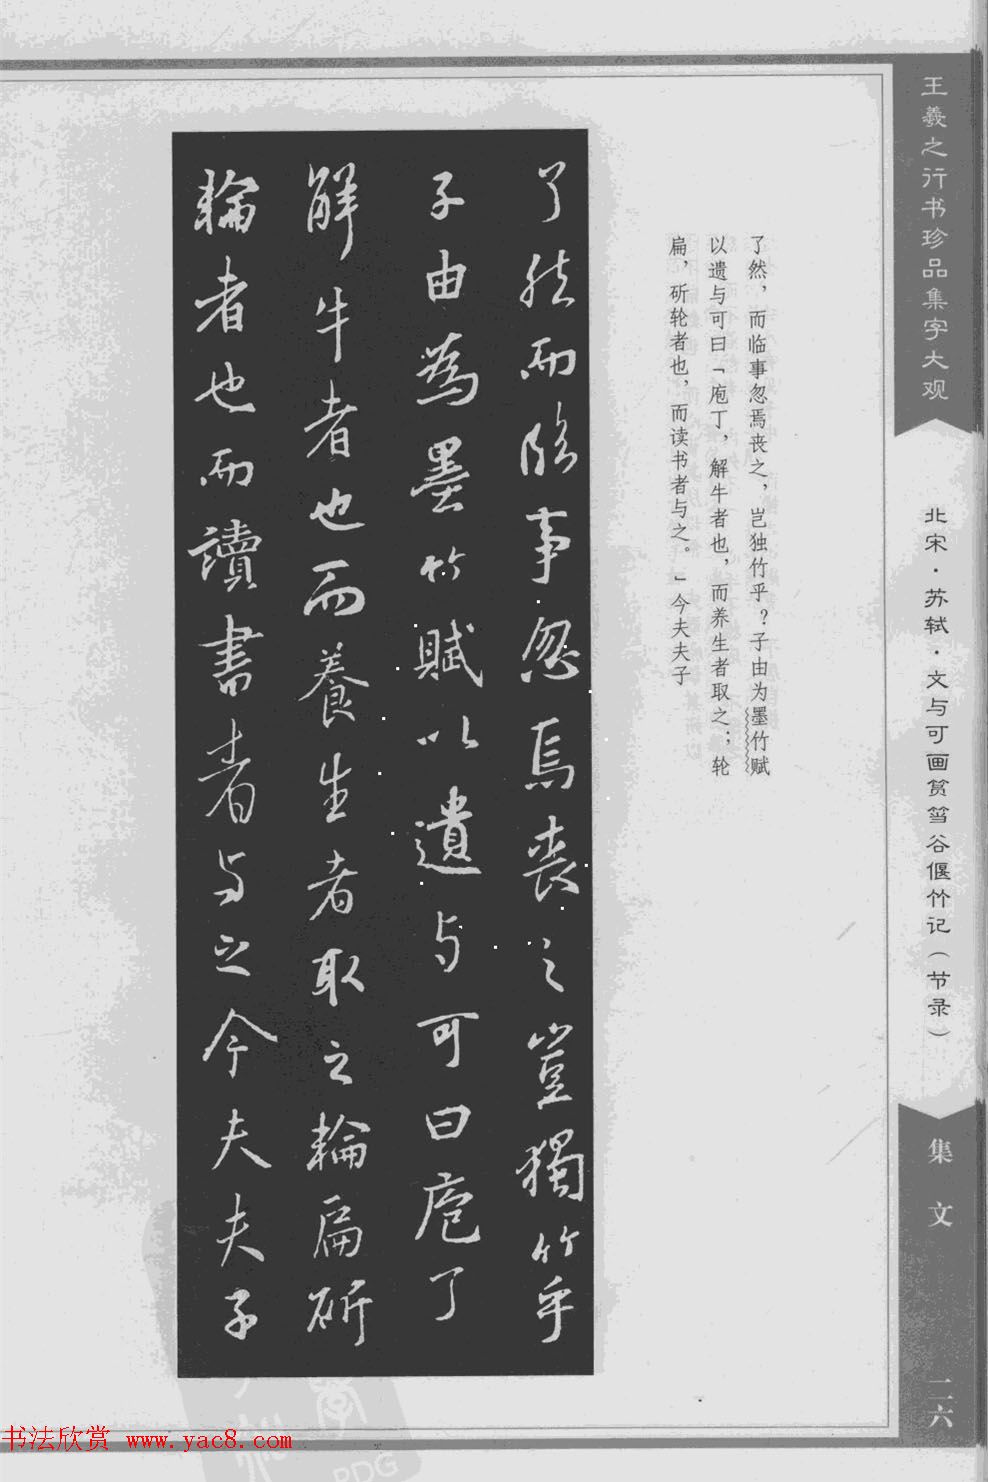 王羲之行书珍品集字大观
北宋·苏轼·文与可画筼筜谷偃竹记（节录）
集文
二六
了然，而临事忽焉丧之，岂独竹乎？子由为墨竹赋
以遗与可曰「庖丁，解牛者也，而养生者取之；轮
扁，斫轮者也，而读书者与之。」今夫夫子
了然而臨事忽焉喪之豈獨竹乎
子由為墨竹賦以遺與可曰庖丁
解牛者也而養生者取之輪扁斫
輪者也而讀書者與之今夫夫子
书法欣赏 www.yac8.com
PDG